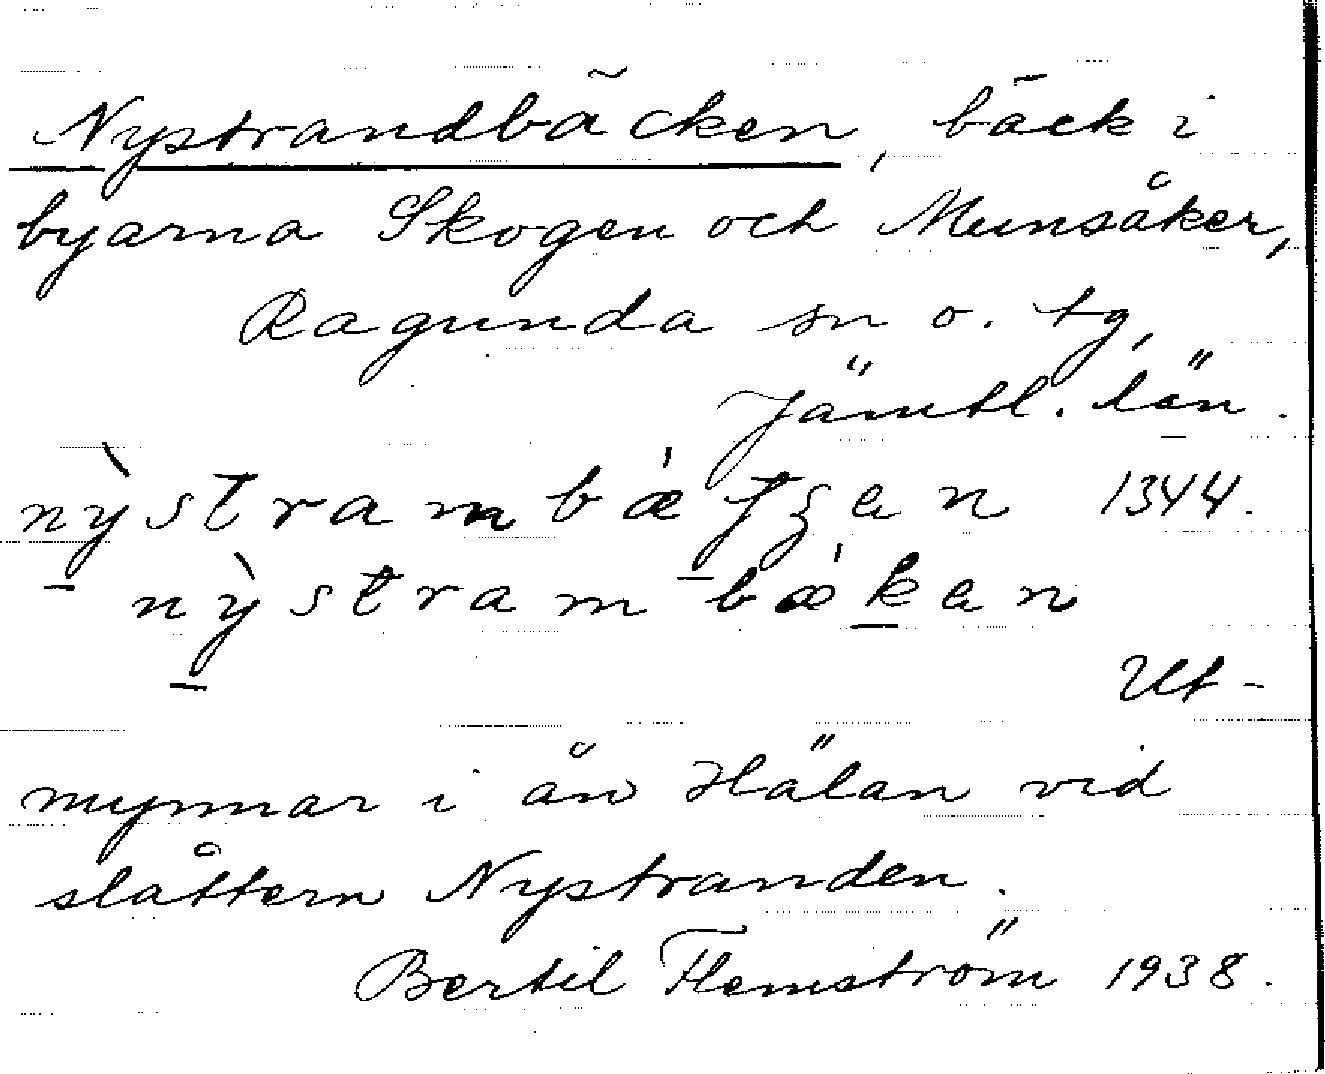 Nystrandbäcken, bäck i
byarna Skogen och Munsåker,
Ragunda sn o. tg,
Jämtl. län.
nỳstrambæ̍tʃen 1344.
nỳstrambæ̍ken
Ut-
mynnar i ån Hälan vid
slåttern Nystranden.
Bertil Flemström 1938.